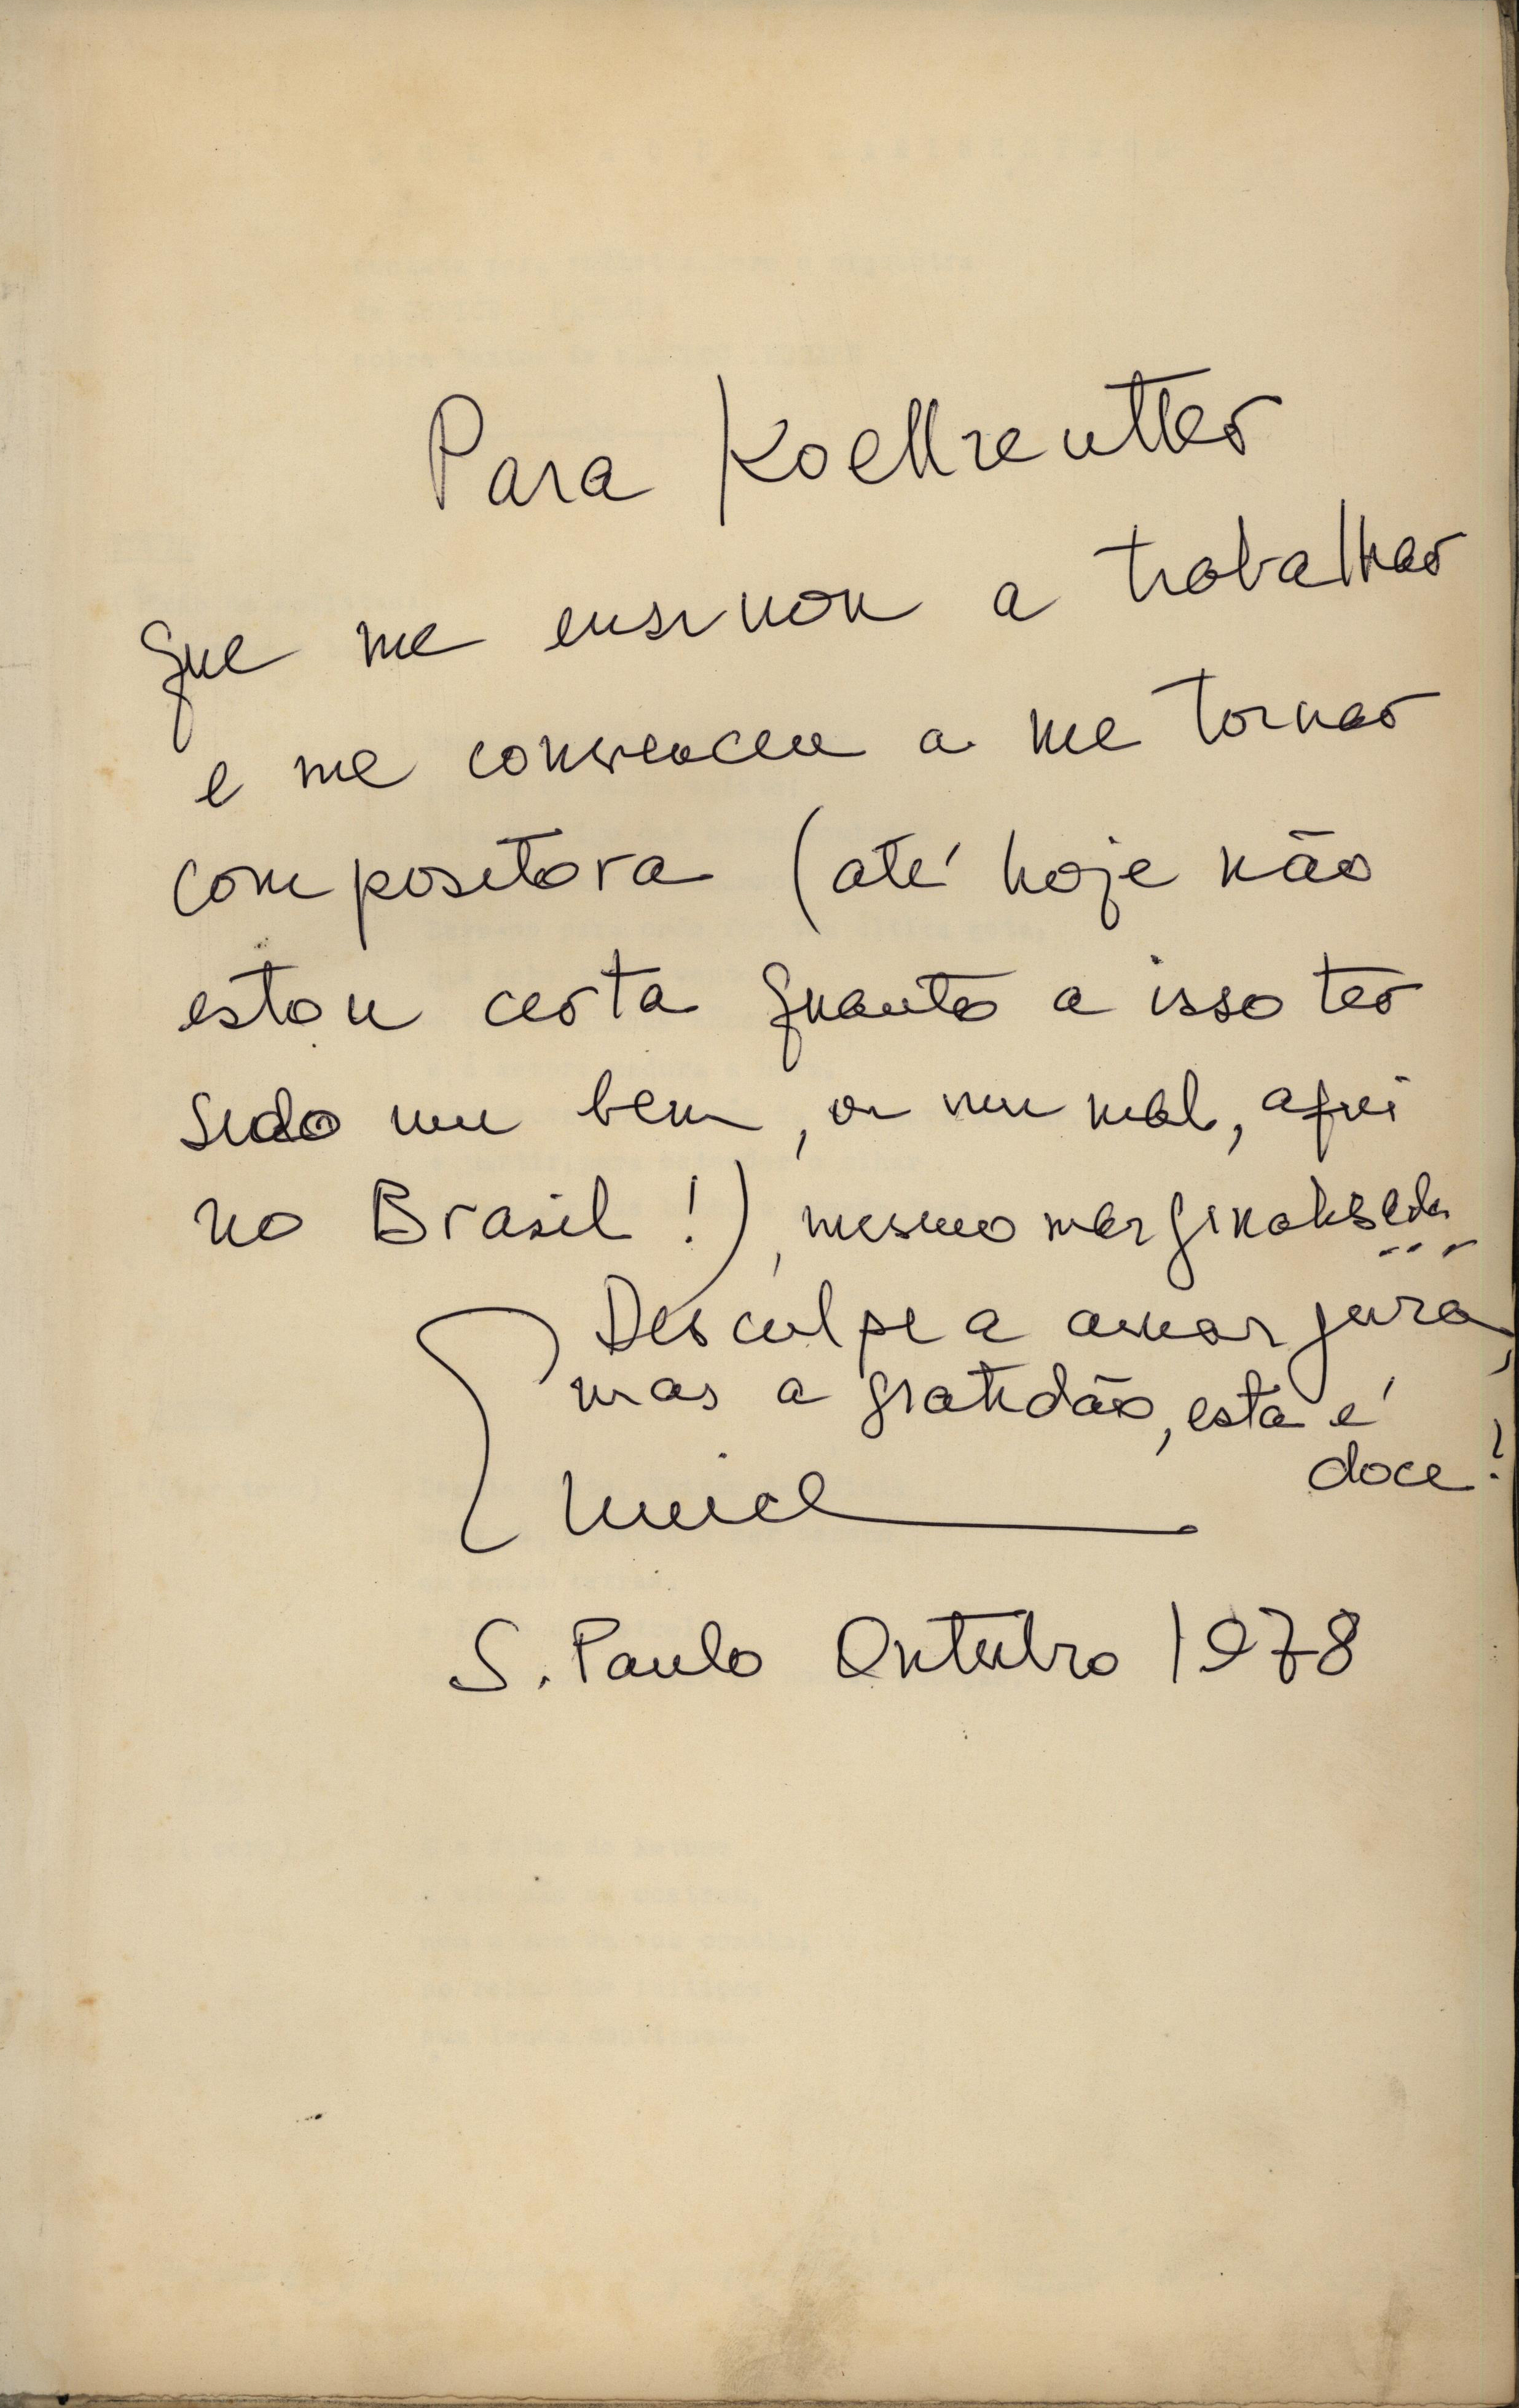 Para Koellreutter
que me ensinou a trabalhar
e me convenceu a me tornar
compositora (até hoje não
estou certa quanto a isso ter
sido um bem, ou um mal, aqui
no Brasil!), mesmo marginalizada
Desculpe a amargura,
mas a gratidão, esta é
doce!
S. Paulo Outubro 1978